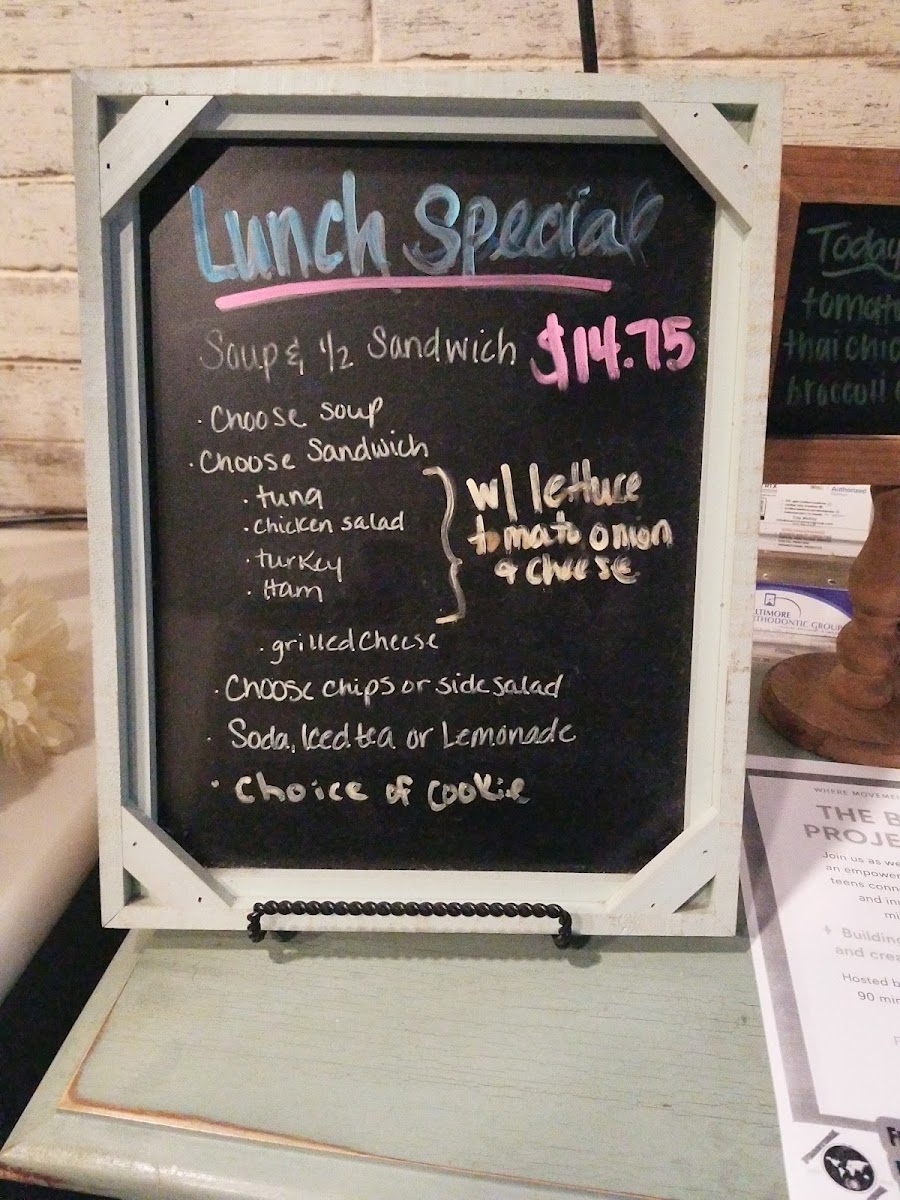 Lunch Special
Soup & 1/2 Sandwich $14.75
· Choose soup
· Choose Sandwich
· tuna
· chicken salad
· turkey
· Ham
w/ lettuce
tomato onion
& cheese
· grilled cheese
· Choose chips or side salad
· Soda, Iced tea or Lemonade
· Choice of cookie
Today
thai chic
broccoli
Authorized
TIMORE
THODONTIC GROUP
WHERE MOVEME
THE B
PROJE
Join us as we
an empower
teens conn
and inn
mi
Building
and crea
Hosted b
90 min